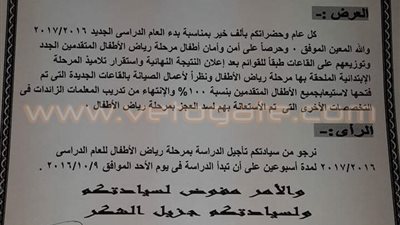 العرض :-
كل عام وحضراتكم بألف خير بمناسبة بدء العام الدراسى الجديد ٢٠١٧/٢٠١٦
والله المعين الموفق ٠ وحرصاً على أمن وأمان أطفال مرحلة رياض الأطفال المتقدمين الجدد
وتوزيعهم على القاعات طبقاً للقوائم بعد إعلان النتيجة النهائية واستقرار تلاميذ المرحلة
الإبتدائية الملحقة بها مرحلة رياض الأطفال ونظراً لأعمال الصيانة بالقاعات الجديدة التى تم
فتحها لاستيعاب جميع الأطفال المتقدمين بنسبة ١٠٠% والإنتهاء من تدريب المعلمات الزائدات فى
التخصصات الأخرى التى تم الاستعانة بهم لسد العجز بمرحلة رياض الأطفال ٠
www.verogate.com
الرأى :-
نرجو من سيادتكم تأجيل الدراسة بمرحلة رياض الأطفال للعام الدراسى
٢٠١٧/٢٠١٦ لمدة أسبوعين على أن تبدأ الدراسة فى يوم الأحد الموافق ٢٠١٦/١٠/٩ ٠
والأمر مفوض لسيادتكم
ولسيادتكم جزيل الشكر